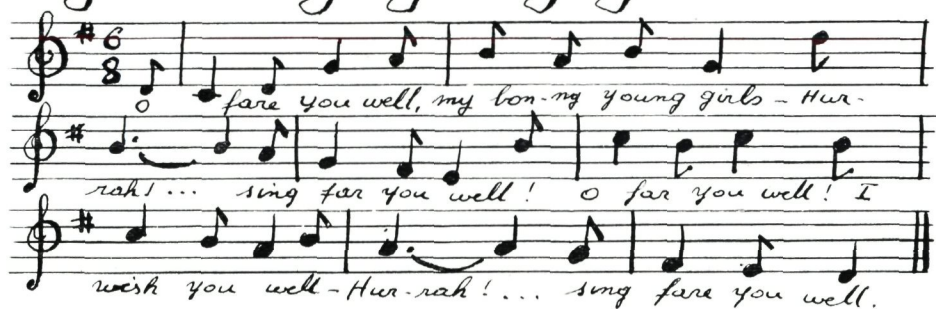 6
8
O fare you well, my bon-ng young girls - Hur-
rah! ... sing far you well! O far you well! I
wish you well - Hur-rah! ... sing fare you well.